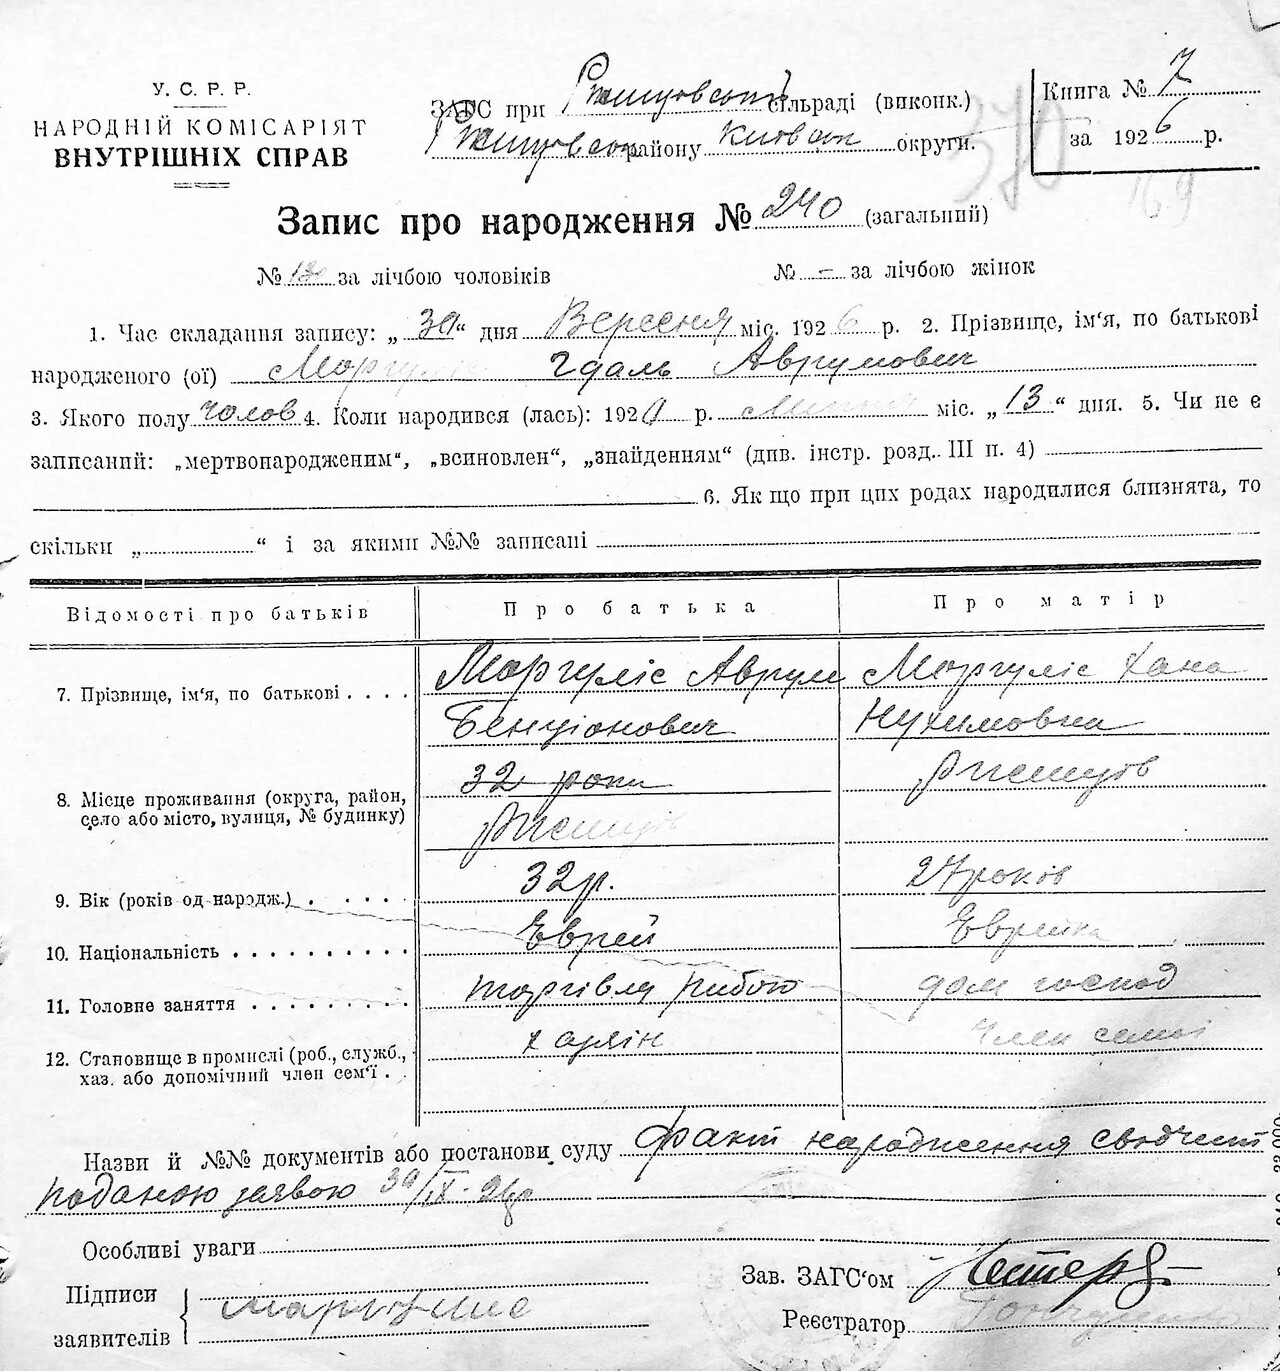 У. С. Р. Р.
НАРОДНІЙ КОМІСАРІЯТ
ВНУТРІШНІХ СПРАВ
ЗАГС при Ржищовской сільраді (виконк.)
Ржищовском району Киовск округи.
Книга № 7
за 1926 р.
370
169
Запис про народження № 240 (загальний)
№ 130 за лічбою чоловіків № – за лічбою жінок
1. Час складання запису: „30“ дня Вересня міс. 1926 р. 2. Прізвище, ім'я, по батькові
народженого (ої) Моргуліс Гдаль Аврумович
3. Якого полу чолов 4. Коли народився (лась): 192 р. Липня міс. „13“ дня. 5. Чи не є
записаний: „мертвонародженим“, „всиновлен“, „знайденням“ (див. інстр. розд. III п. 4)
6. Як що при цих родах народилися близнята, то
скільки „ “ і за якими №№ записані
Відомості про батьків Про батька Про матір
7. Прізвище, ім'я, по батькові . . . . Моргуліс Аврум Моргуліс Хана
Бенціонович Нухимовна
32 роки Ржищів
8. Місце проживання (округа, район,
село або місто, вулиця, № будинку) Ржищів
9. Вік (років од народж.) . . . . . 32 р. 27 років
10. Національність . . . . . . . . . Еврей Еврейка
11. Головне заняття . . . . . . . . торгівля рибою дом господ
12. Становище в промислі (роб., служб.,
хаз. або допомічний член сем'ї . . хазяін Член семьі
Назви й №№ документів або постанови суду факт народження сводчит
поданою заявою 30/IX-26р
Особливі уваги
Підписи
заявителів
Моргулис
Зав. ЗАГС'ом
Реєстратор